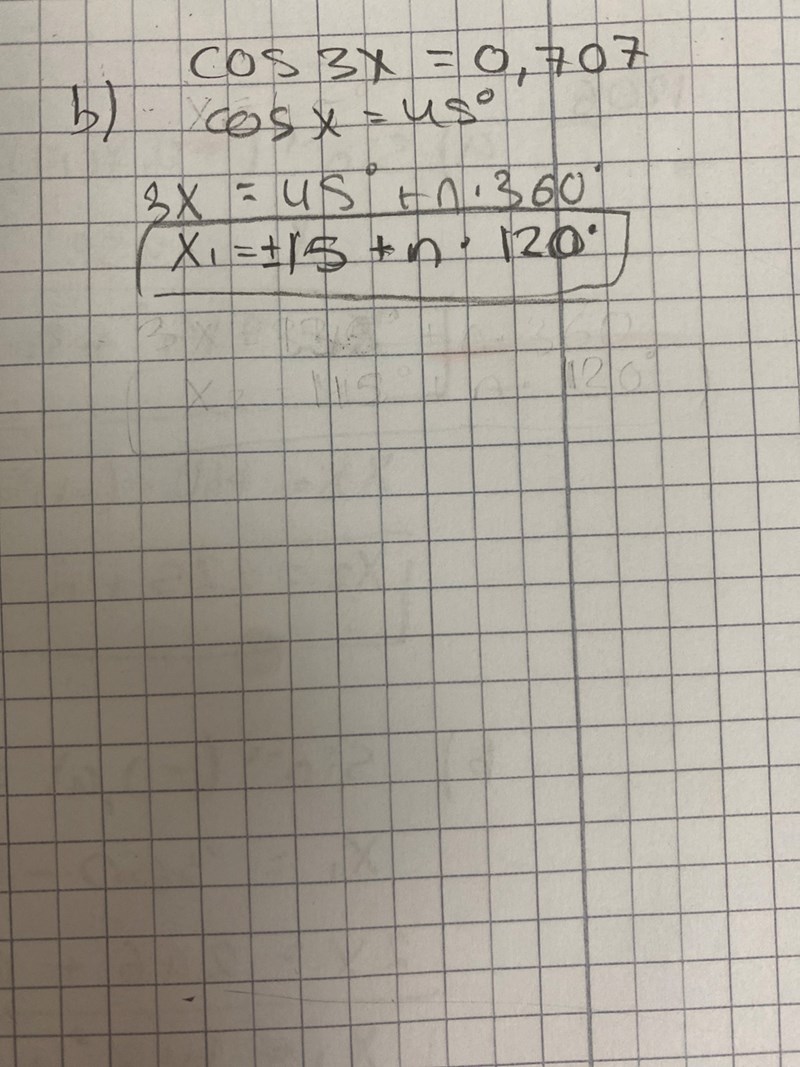 cos 3x = 0,707
b) cos x = 45°
3x = 45° + n · 360°
x₁ = ±15 + n · 120°